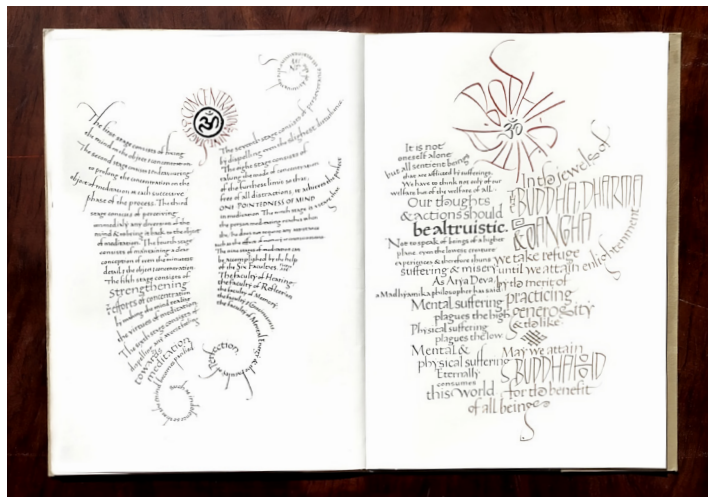 CONCENTRATION
The first stage consists of fixing
the mind on the object concentration
The second stage consists in endeavouring
to prolong the concentration on the
object of meditation as each successive
phase of the process. The third
stage consists of perceiving
immediately any diversion of the
mind & bringing it back to the object
of meditation. The fourth stage
consists of maintaining a clear
conception of even the minutest
details of the object concentration
The fifth stage consists of
strengthening
the efforts of concentration
by making the mind realise
the virtues of meditation
The sixth stage consists of
dispelling any
towards
meditation
the mind
The seventh stage consists of
by dispelling even the slightest disturbance
The eighth stage consists of
the mode of concentration
of the furthest limits so that,
free of all distractions, is achieved the perfect
ONE POINTEDNESS OF MIND
in meditation The ninth stage is
the person meditating
she/he does not require any
such as the efforts of memory or consciousness
The nine stages of meditation can
be accomplished by the help
of the Six Faculties.
The faculty of Hearing,
the faculty of Reflection
the faculty of Memory,
the faculty of
the faculty of Mental Energy & the faculty of
Perfection
BODHI
CITTA
It is not
oneself alone
but all sentient beings
that are afflicted by sufferings.
We have to think not only of our
welfare but of the welfare of all.
Our thoughts
& actions should
be altruistic.
Not to speak of beings of a higher
plane, even the lowest creature
experiences & therefore shuns
suffering & misery
As Arya Deva
a Madhyamika philosopher has said
Mental suffering
plagues the high
Physical suffering
plagues the low
Mental &
physical suffering
Eternally
consumes
this world
In the jewels of
THE BUDDHA, DHARMA
& SANGHA
we take refuge
until we attain enlightenment
by the merit of
practicing
generosity
& the like
May we attain
BUDDHAHOOD
for the benefit
of all beings